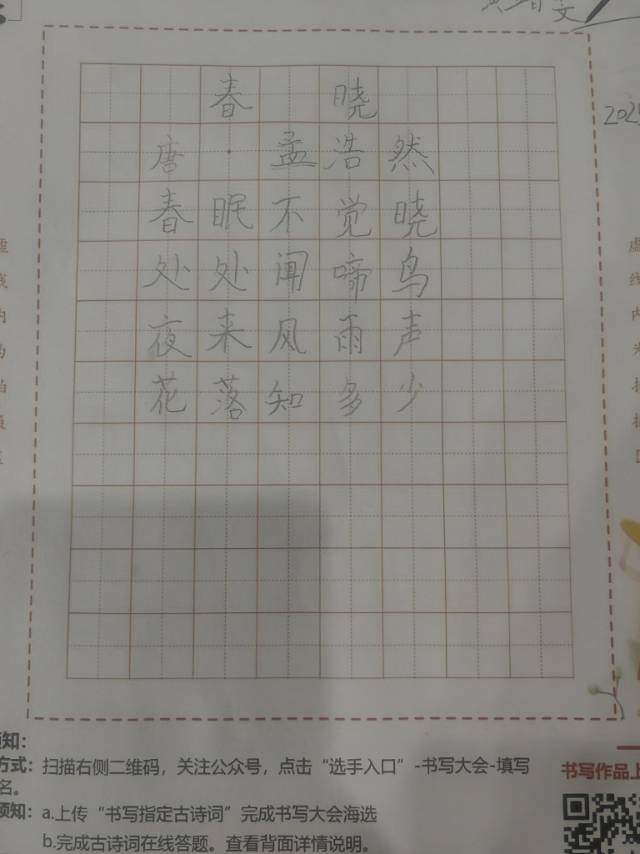 春 晓
唐·孟浩然
春眠不觉晓
处处闻啼鸟
夜来风雨声
花落知多少
须知:
方式: 扫描右侧二维码，关注公众号，点击“选手入口”-书写大会-填写
名。
须知: a.上传“书写指定古诗词”完成书写大会海选
b.完成古诗词在线答题。查看背面详情说明。
书写作品上